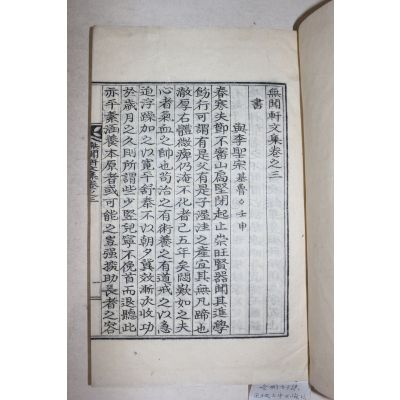 無聞軒文集卷之三
書
與李聖宗基魯○壬申
春寒失節不審山扃堅閉起止崇旺賢器聞其進學
飭行可謂有是父有是子渥洼之産宜其無凡蹄也
敝厚右體微痹仍淹不化者已五年矣悶歎如之夫
心者氣血之帥也苟治之有術養之有道戒之以急
迫浮躁加之以寬平舒泰不以朝夕冀效漸次收功
於歲月之久則所謂些少竪兒寧不俛首而退聽此
亦平素涵養本原者或可能之豈强揠助長者之容
無聞軒文集卷之三